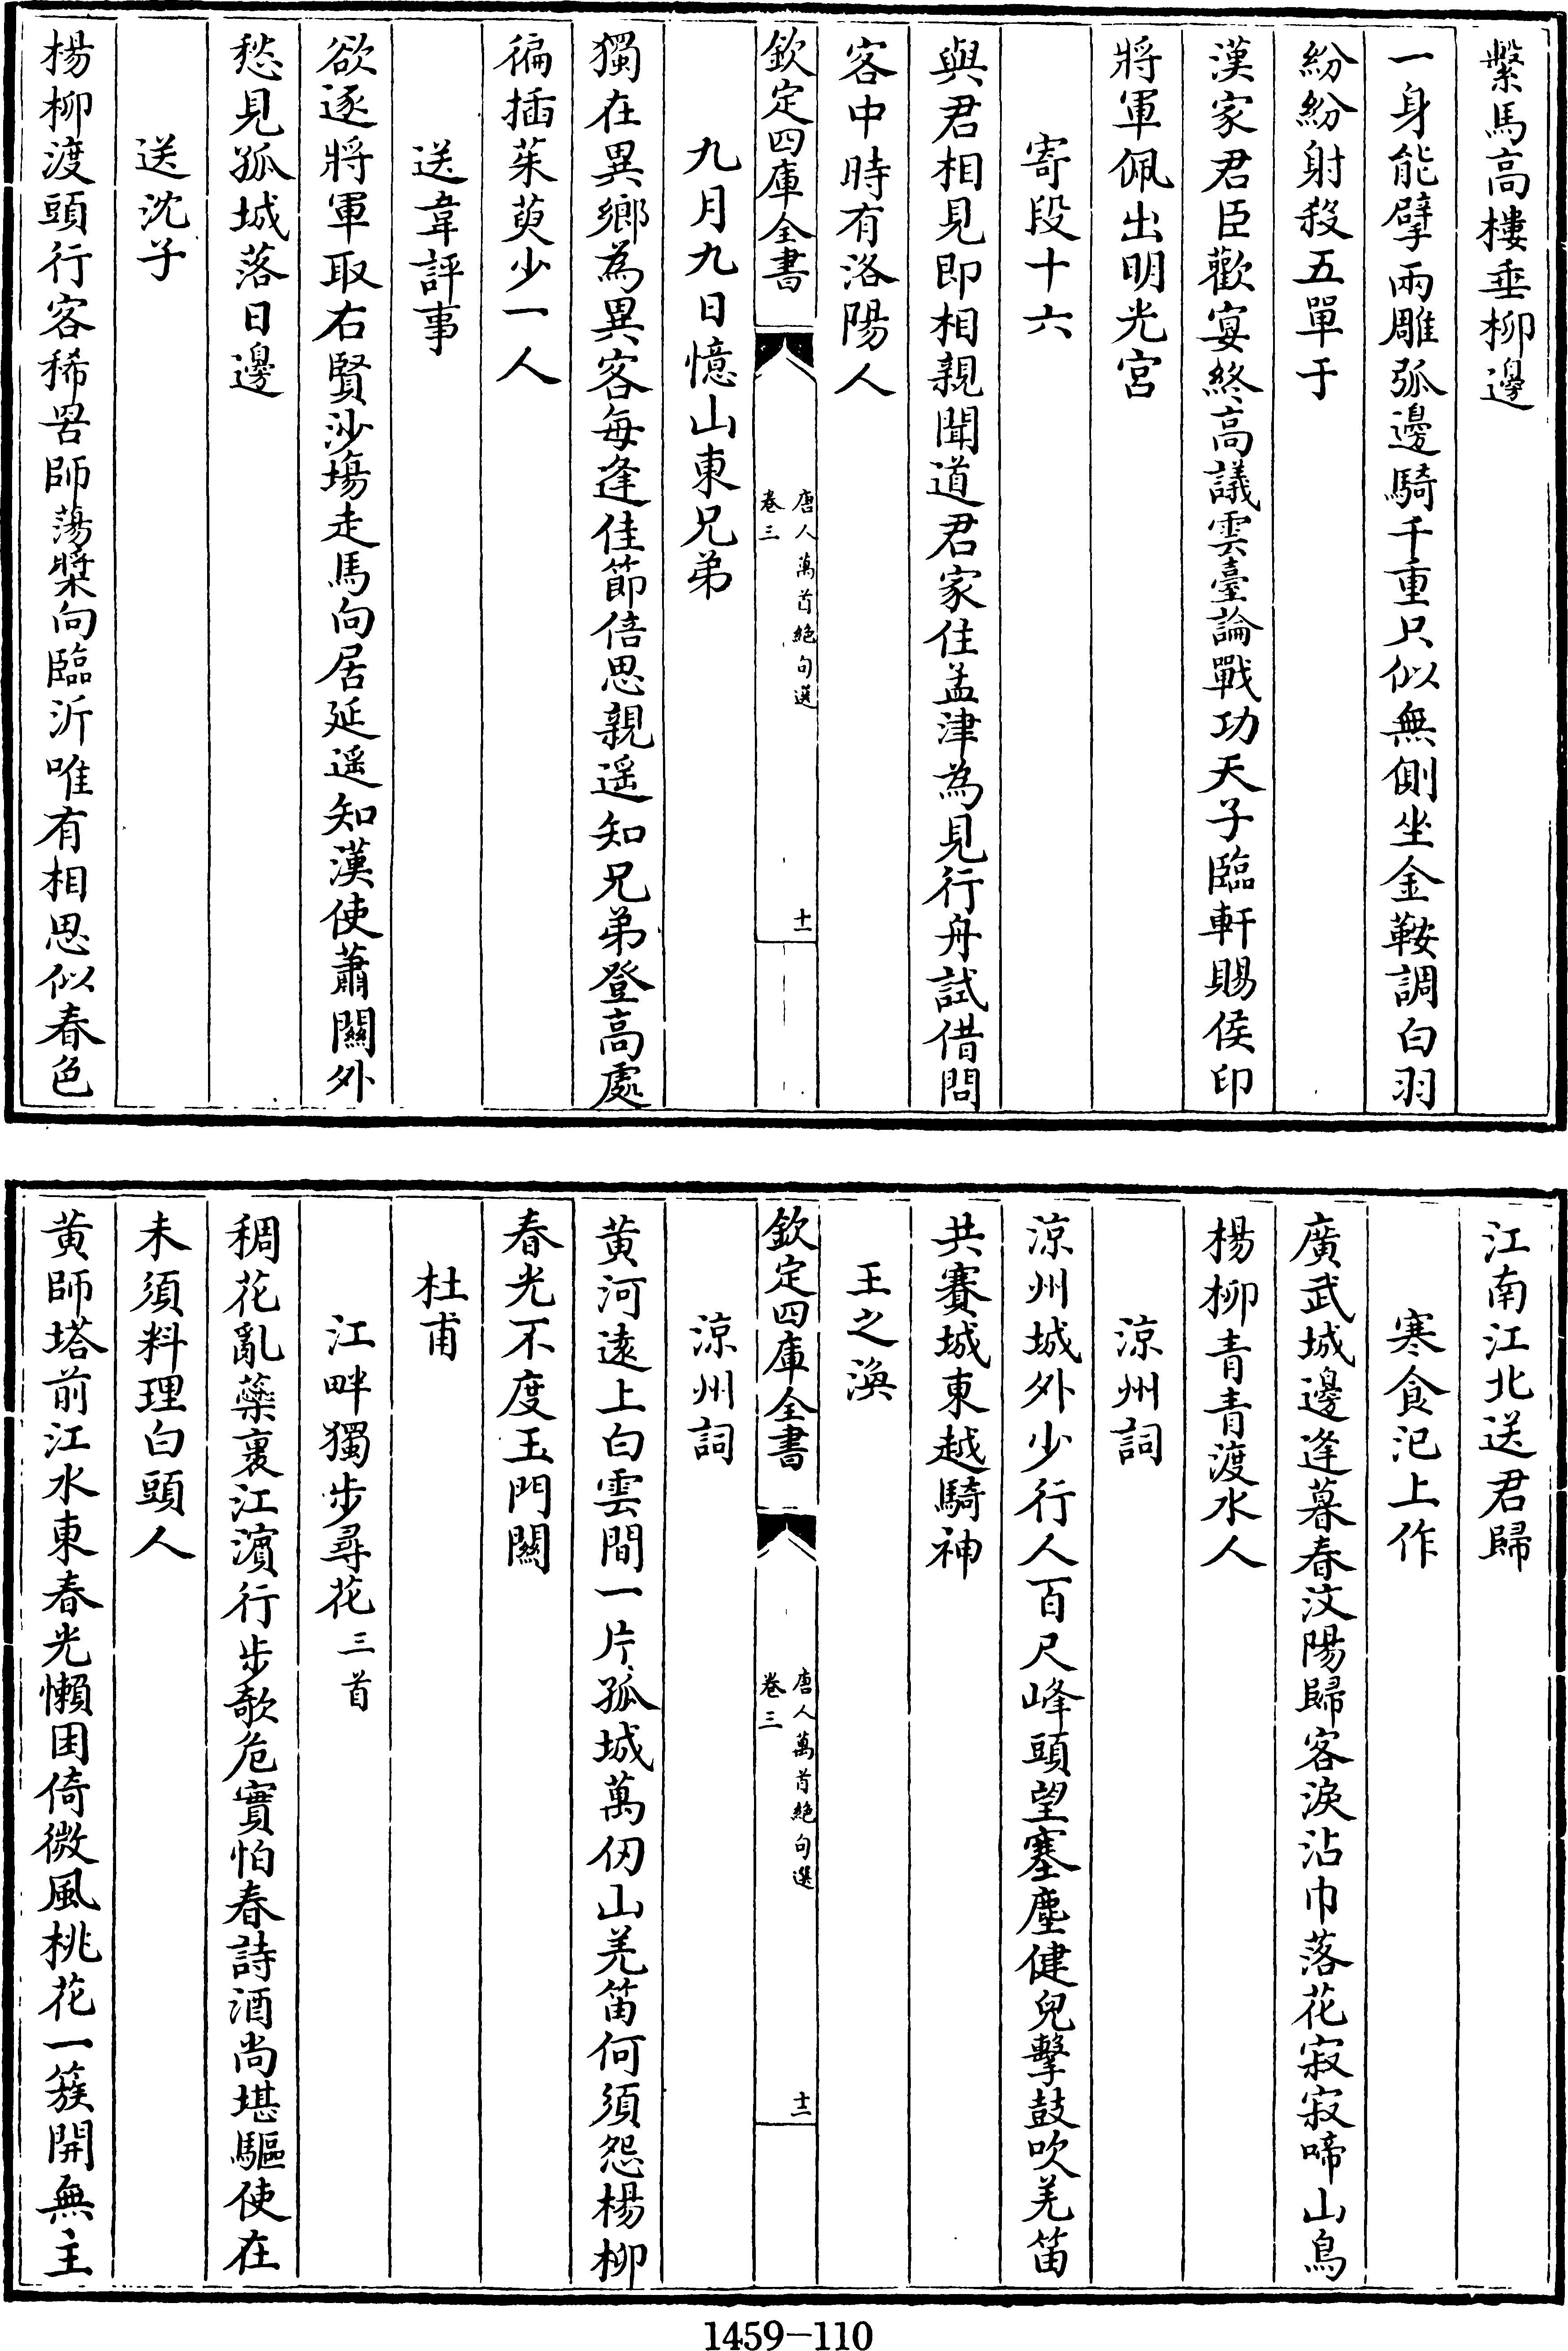 繫馬高樓垂柳邊
一身能擘兩雕弧邊騎千重只似無側坐金鞍調白羽
紛紛射殺五單于
漢家君臣歡宴終高議雲臺論戰功天子臨軒賜侯印
將軍佩出明光宮
寄段十六
與君相見即相親聞道君家住孟津為見行舟試借問
客中時有洛陽人
欽定四庫全書
唐人萬首絕句選
卷三
十一
九月九日憶山東兄弟
獨在異鄉為異客每逢佳節倍思親遥知兄弟登高處
徧插茱萸少一人
送韋評事
欲逐將軍取右賢沙塲走馬向居延遥知漢使蕭關外
愁見孤城落日邊
送沈子
楊柳渡頭行客稀罟師蕩槳向臨沂唯有相思似春色
江南江北送君歸
寒食汜上作
廣武城邊逢暮春汶陽歸客淚沾巾落花寂寂啼山鳥
楊柳青青渡水人
涼州詞
涼州城外少行人百尺峰頭望塞塵健兒擊鼓吹羌笛
共賽城東越騎神
王之渙
欽定四庫全書
唐人萬首絕句選
卷三
十二
涼州詞
黄河遠上白雲間一片孤城萬仞山羌笛何須怨楊柳
春光不度玉門關
杜甫
江畔獨步尋花三首
稠花亂藥裏江濵行步欹危實怕春詩酒尚堪驅使在
未須料理白頭人
黄師塔前江水東春光懶困倚微風桃花一簇開無主
1459-110